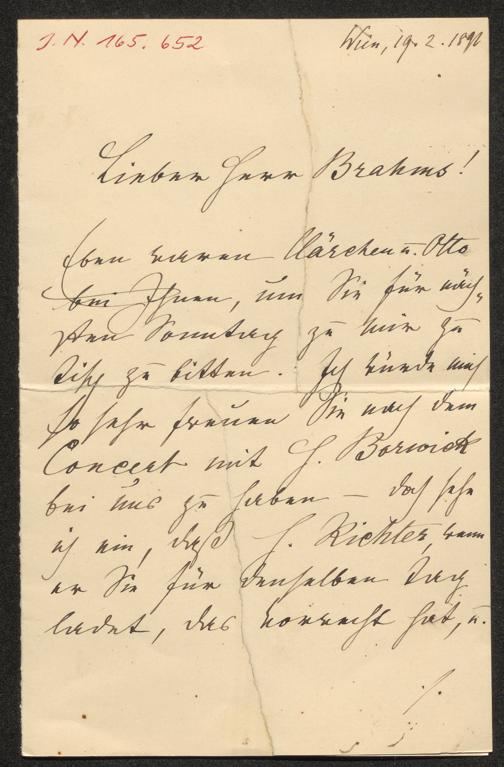 J. N. 165.652
Wien, 19. 2. 1891
Lieber Herr Brahms!
Eben waren Clärchen u. Otto
bei Ihnen, um Sie für näch„
sten Sonntag zu mir zu
Tisch zu bitten. Ich würde mich
so sehr freuen Sie nach dem
Concert mit H. Borwick
bei uns zu haben – doch sehe
ich ein, daß H. Richter, wenn
er Sie für denselben Tag
ladet, das Vorrecht hat, u.